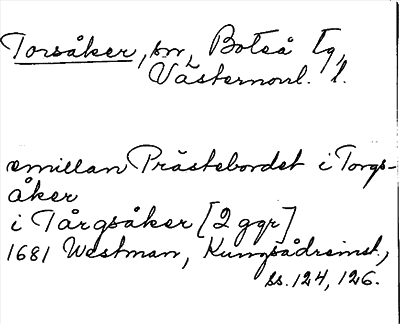 Torsåker, sn, Boteå tg,
Västernorrl. l.
emillan Prästebordet i Torgs-
åker
i Tårgsåker [2 ggr]
1681 Westman, Kungsådreinst.,
ss. 124, 126.